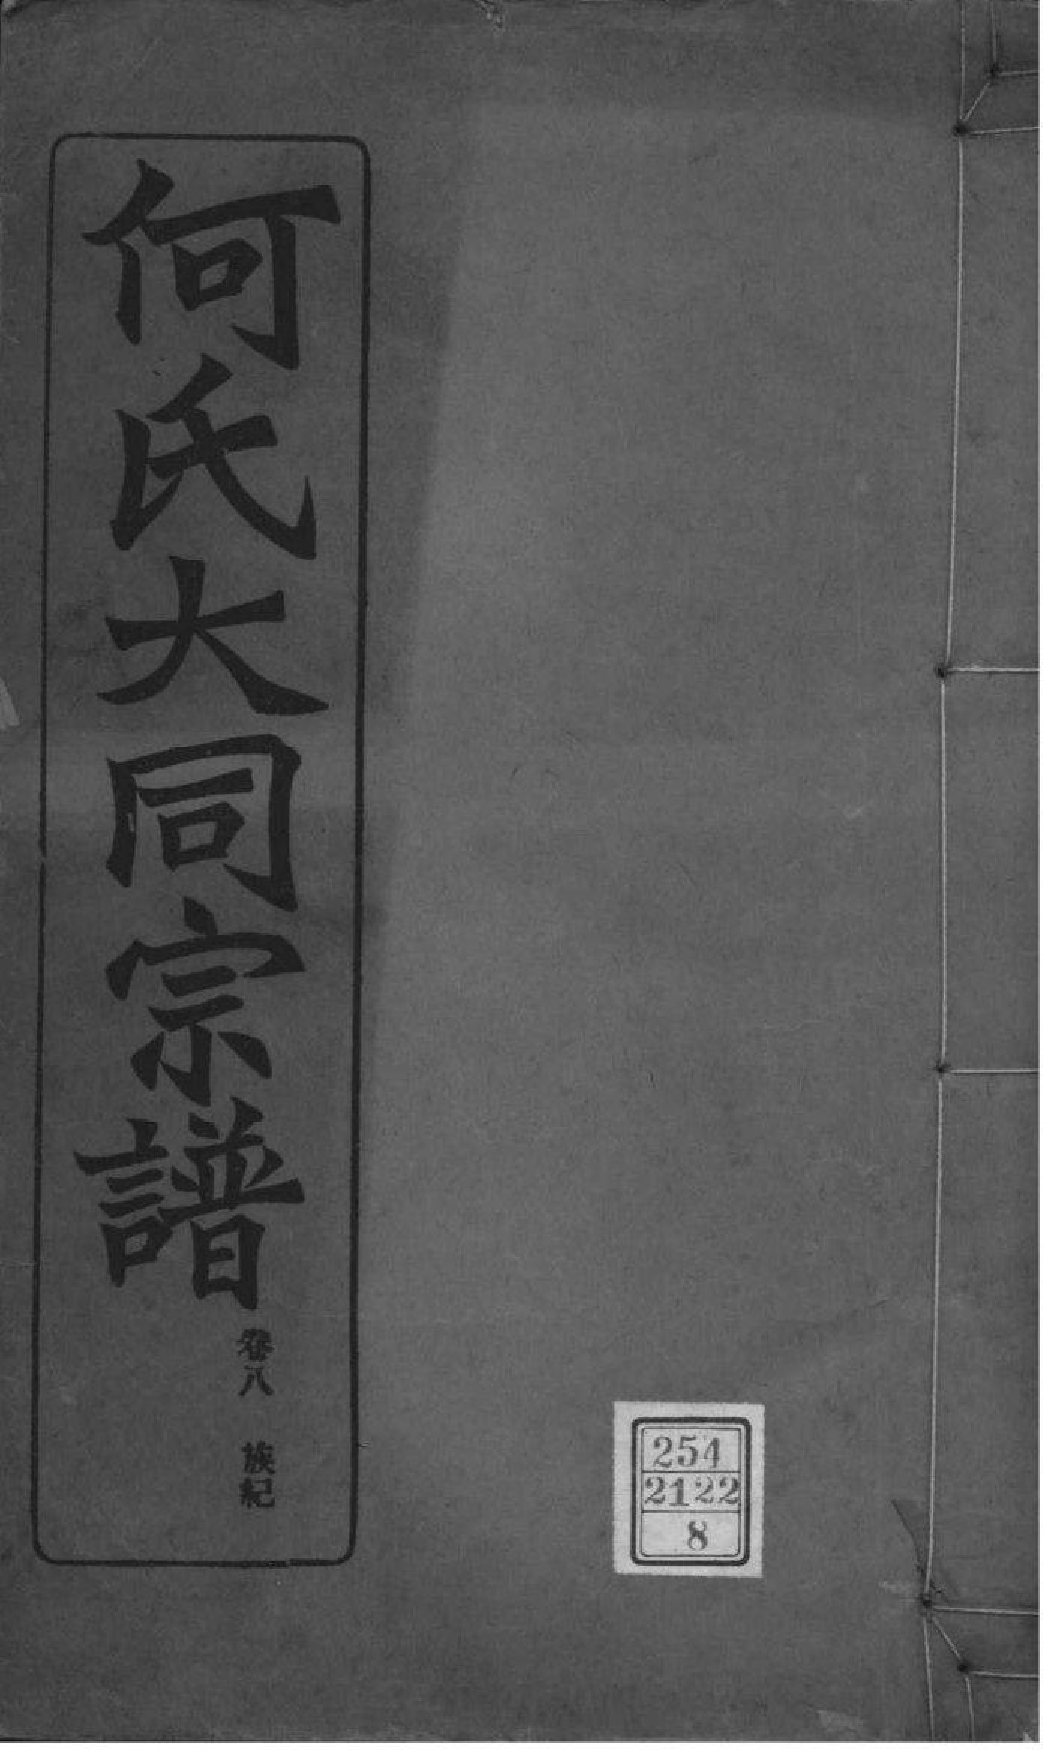 何氏大同宗譜
卷八 族紀
254
2122
8